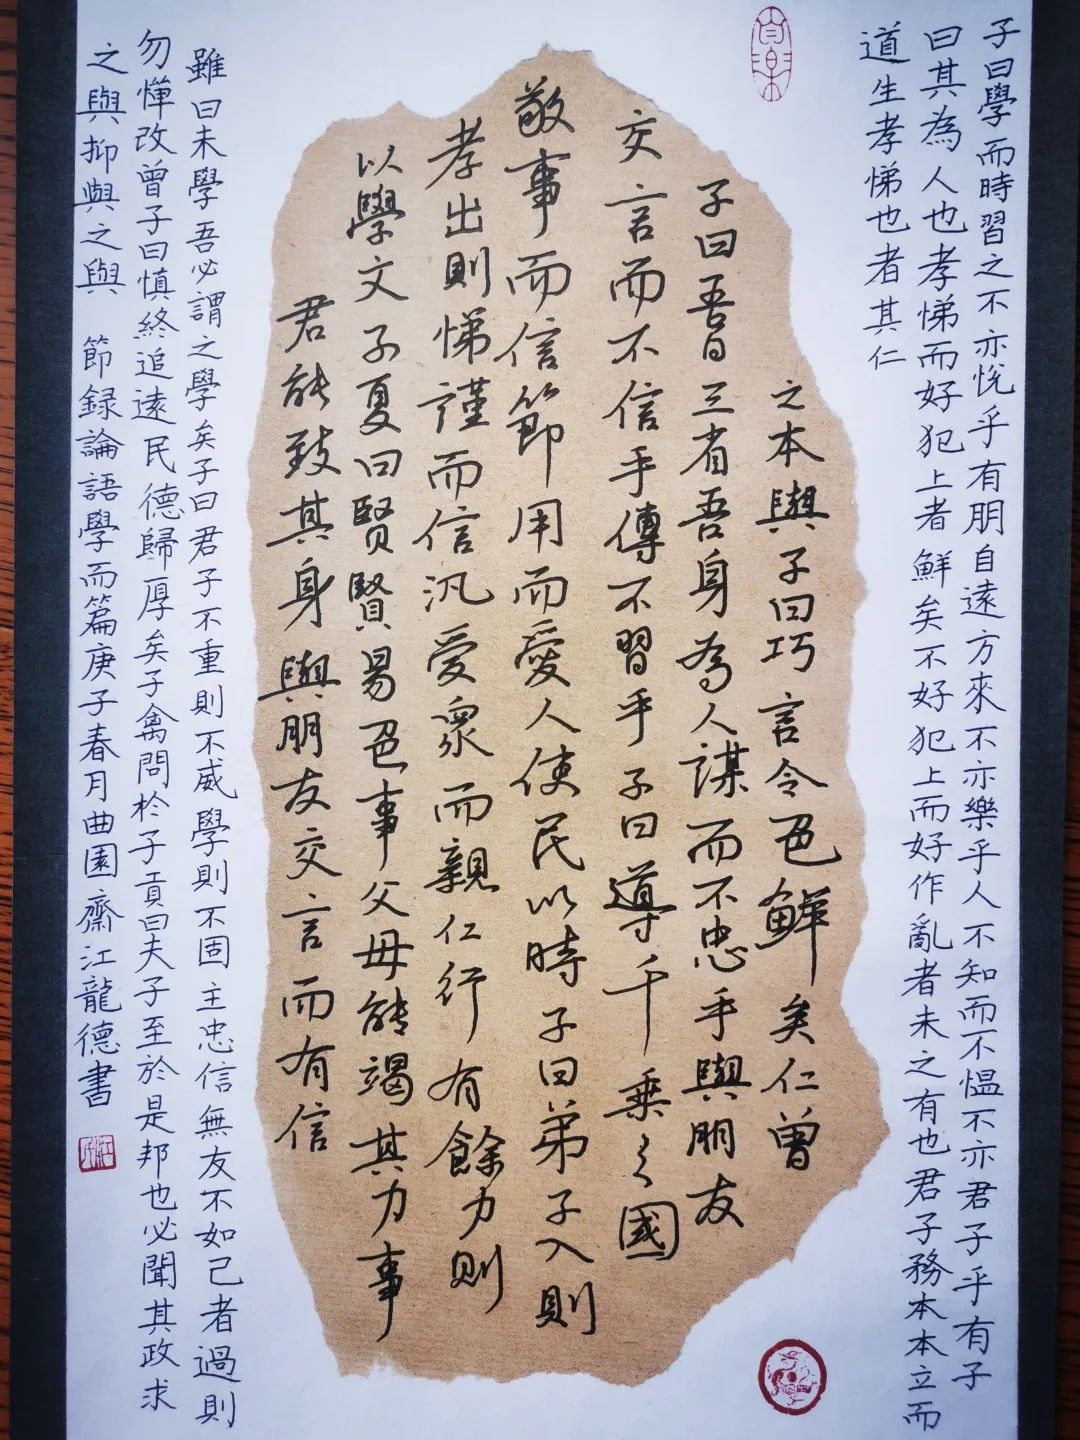 子曰學而時習之不亦悅乎有朋自遠方來不亦樂乎人不知而不愠不亦君子乎有子
曰其為人也孝悌而好犯上者鮮矣不好犯上而好作亂者未之有也君子務本本立而
道生孝悌也者其仁
之本與子曰巧言令色鮮矣仁曾
子曰吾日三省吾身為人謀而不忠乎與朋友
交言而不信乎傳不習乎子曰導千乘之國
敬事而信節用而愛人使民以時子曰弟子入則
孝出則悌謹而信汎愛眾而親仁行有餘力則
以學文子夏曰賢賢易色事父母能竭其力事
君能致其身與朋友交言而有信
雖曰未學吾必謂之學矣子曰君子不重則不威學則不固主忠信無友不如己者過則
勿憚改曾子曰慎終追遠民德歸厚矣子禽問於子貢曰夫子至於是邦也必聞其政求
之與抑與之與 節録論語學而篇庚子春月曲園齋江龍德書